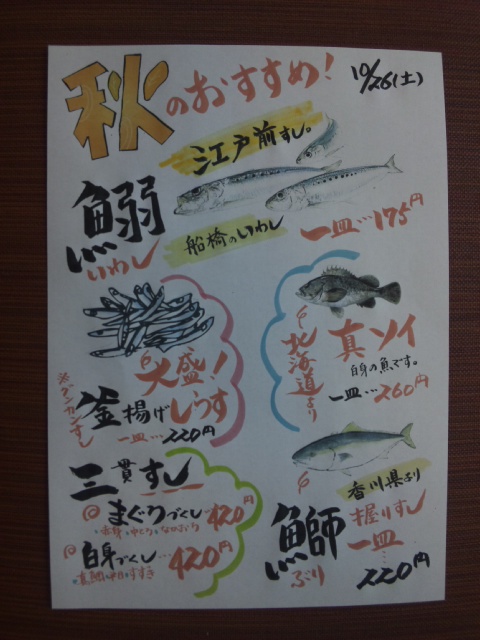 秋のおすすめ!
10/26(土)
江戸前すし。
鰯
いわし
船橋のいわし
一皿…175円
大盛!
釜揚げしらす
※グンカンずし
一皿…220円
北海道より
真ソイ
白身の魚です。
一皿…260円
三貫すし
まぐろづくし…420円
・赤身・中とろ・なかおち
白身づくし…420円
香川県より
鰤
ぶり
握りすし
一皿…
220円